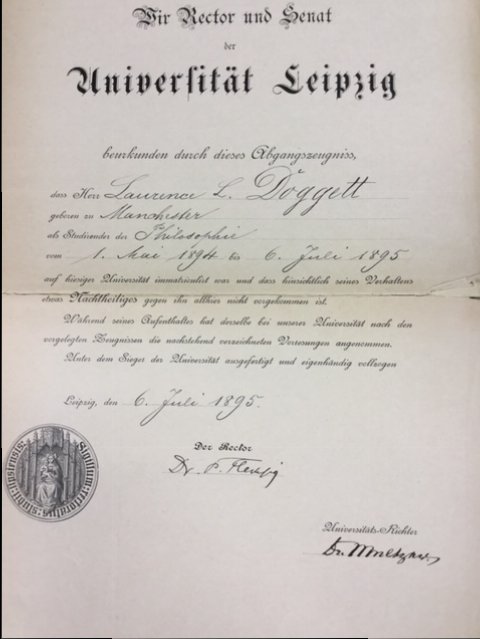 Wir Rector und Senat
der
Universität Leipzig
beurkunden durch dieses Abgangszeugniss,
dass Herr Laurence L. Doggett
geboren zu Manchester
als Studirender der Philosophie
vom 1. Mai 1894 bis 6. Juli 1895
auf hiesiger Universität immatriculirt war und dass hinsichtlich seines Verhaltens
etwas Nachtheiliges gegen ihn allhier nicht vorgekommen ist.
Während seines Aufenthaltes hat derselbe bei unserer Universität nach den
vorgelegten Zeugnissen die nachstehend verzeichneten Vorlesungen angenommen.
Unter dem Siegel der Universität ausgefertigt und eigenhändig vollzogen
Leipzig, den 6. Juli 1895.
Der Rector
Dr. P. Flechsig
Universitäts-Richter
Dr. Meltzer